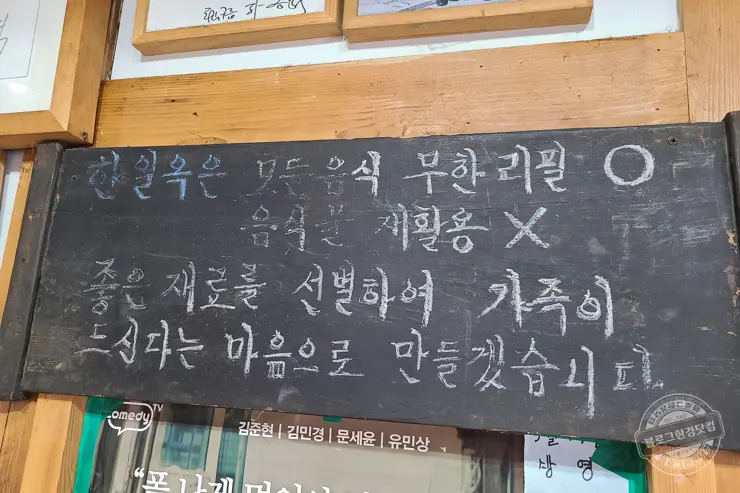 한일옥은 모든음식 무한리필 O
음식물 재활용 X
좋은 재료를 선별하여 가족이
드신다는 마음으로 만들겠습니다.
comedy TV
김준현 | 김민경 | 문세윤 | 유민상
방영
블로그한경닷컴